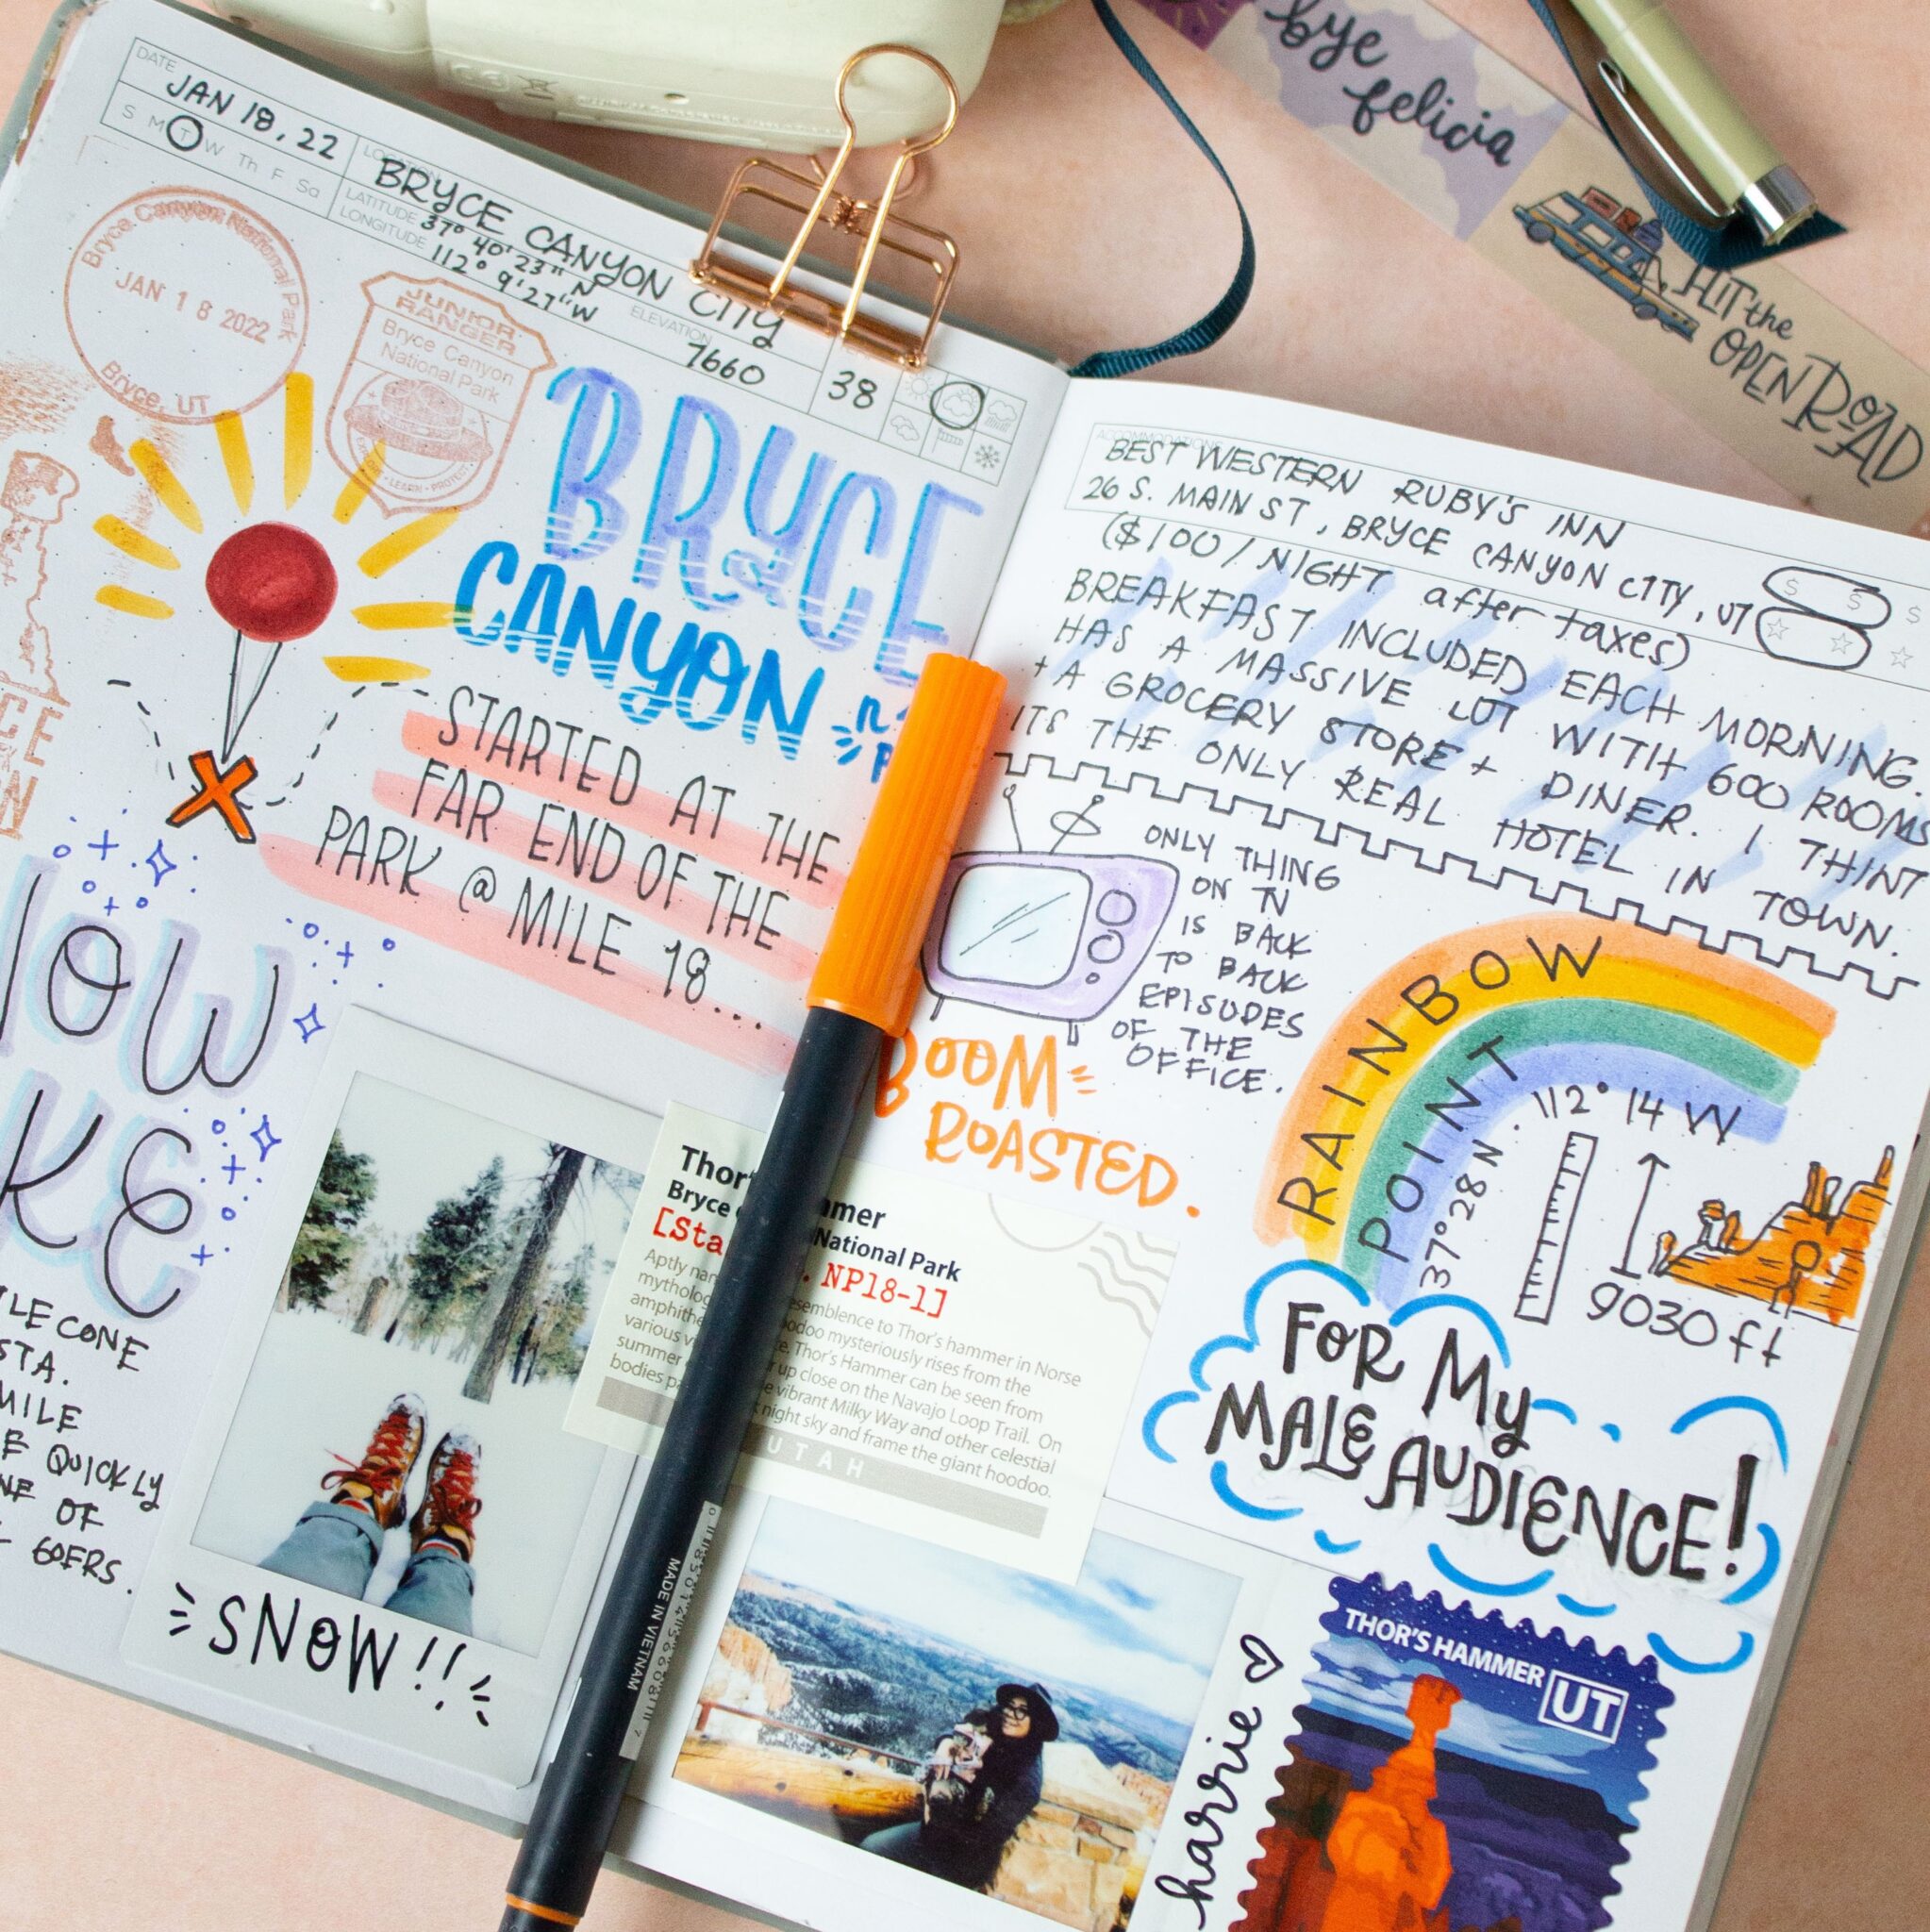 DATE
JAN 18, 22
S M T W Th F Sa
BRYCE CANYON CITY
LATITUDE 37° 40' 23" N
LONGITUDE 112° 9' 27" W
ELEVATION
7660
38
Bryce Canyon National Park
JAN 18 2022
Bryce, UT
JUNIOR
RANGER
Bryce Canyon
National Park
LEARN • PROTECT
BRYCE
CANYON
STARTED AT THE
FAR END OF THE
PARK @ MILE 18...
CONE
MILE
QUICKLY
OF
60ERS.
SNOW!!
bye
felicia
HIT the
OPEN ROAD
ACCOMMODATIONS
BEST WESTERN RUBY'S INN
26 S. MAIN ST, BRYCE CANYON CITY, UT
($100/NIGHT after taxes)
BREAKFAST INCLUDED EACH MORNING.
HAS A MASSIVE LOT WITH 600 ROOMS
+ A GROCERY STORE + DINER. I THINK
ITS THE ONLY REAL HOTEL IN TOWN.
ONLY THING
ON TV
IS BACK
TO BACK
EPISODES
OF THE
OFFICE.
BOOM
ROASTED.
RAINBOW
POINT
37° 28 N. 112° 14 W
9030 ft
FOR My
MALE AUDIENCE!
Bryce National Park
NP18-1]
Aptly
resemblence to Thor's hammer in Norse
mysteriously rises from the
Thor's Hammer can be seen from
various up close on the Navajo Loop Trail. On
summer vibrant Milky Way and other celestial
bodies night sky and frame the giant hoodoo.
UTAH
MADE IN VIETNAM
harrie
THOR'S HAMMER
UT